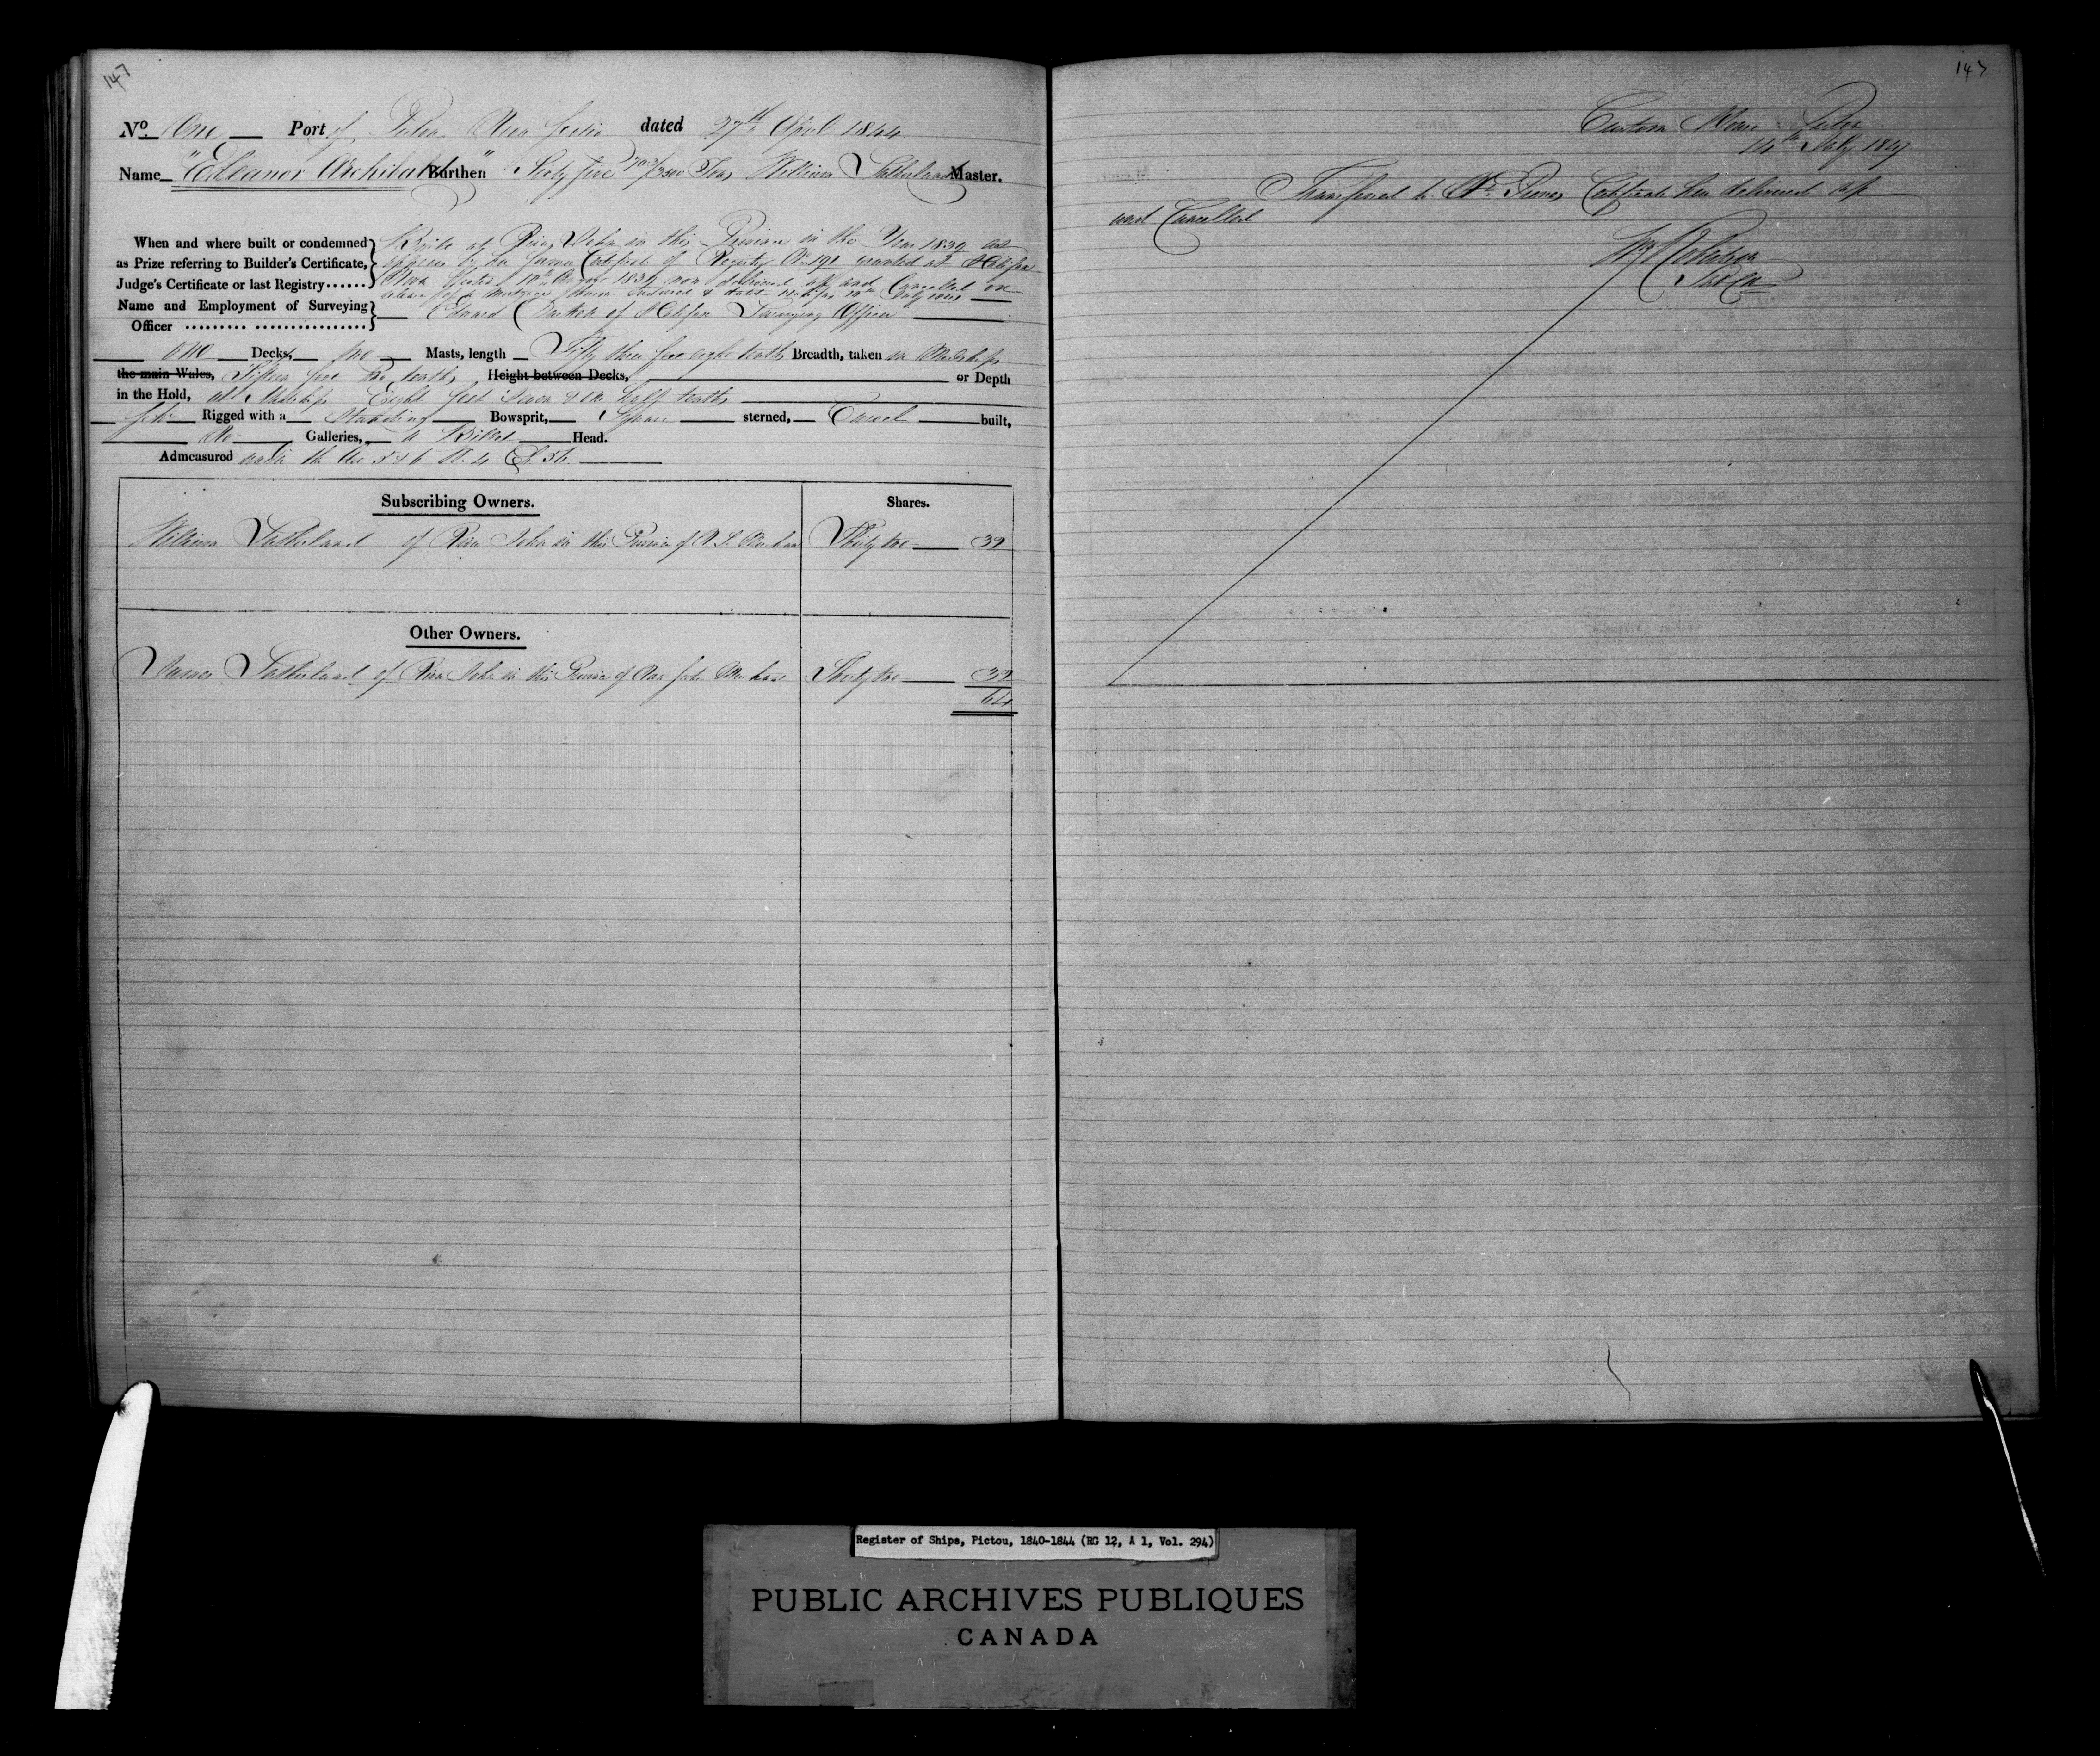 147
No. One Port of Pictou Nova Scotia dated 27th April 1844
Name "Eleanor Archibald" Burthen Sixty five Tons William Sutherland Master.
When and where built or condemned Built at River John in this Province in the Year 1839 as
as Prize referring to Builder's Certificate, appears by her former Certificate of Registry No 191 granted at Halifax
Judge's Certificate or last Registry...... Nova Scotia 1839 now delivered up and Cancelled
Name and Employment of Surveying
Officer Edward of Halifax Surveying Officer
One Decks, Two Masts, length Fifty three feet eight tenths Breadth, taken in Midships
the main Wales, Fifteen feet tenths Height between Decks, or Depth
in the Hold, at Midships Eight feet tenths
Schr Rigged with a Standing Bowsprit, Square sterned, Carvel built,
No Galleries, a Billet Head.
Admeasured under the Act 5 & 6 W. 4 Ch. 56.
Subscribing Owners. Shares.
William Sutherland of River John in this Province of N. S. Merchant Thirty two 32
Other Owners.
James Sutherland of River John in this Province of Nova Scotia Merchant Thirty two 32
64
147
Custom House Pictou
14th July 1847
Transferred to No Certificate here delivered up
and Cancelled
Register of Ships, Pictou, 1840-1844 (RG 12, A 1, Vol. 294)
PUBLIC ARCHIVES PUBLIQUES
CANADA